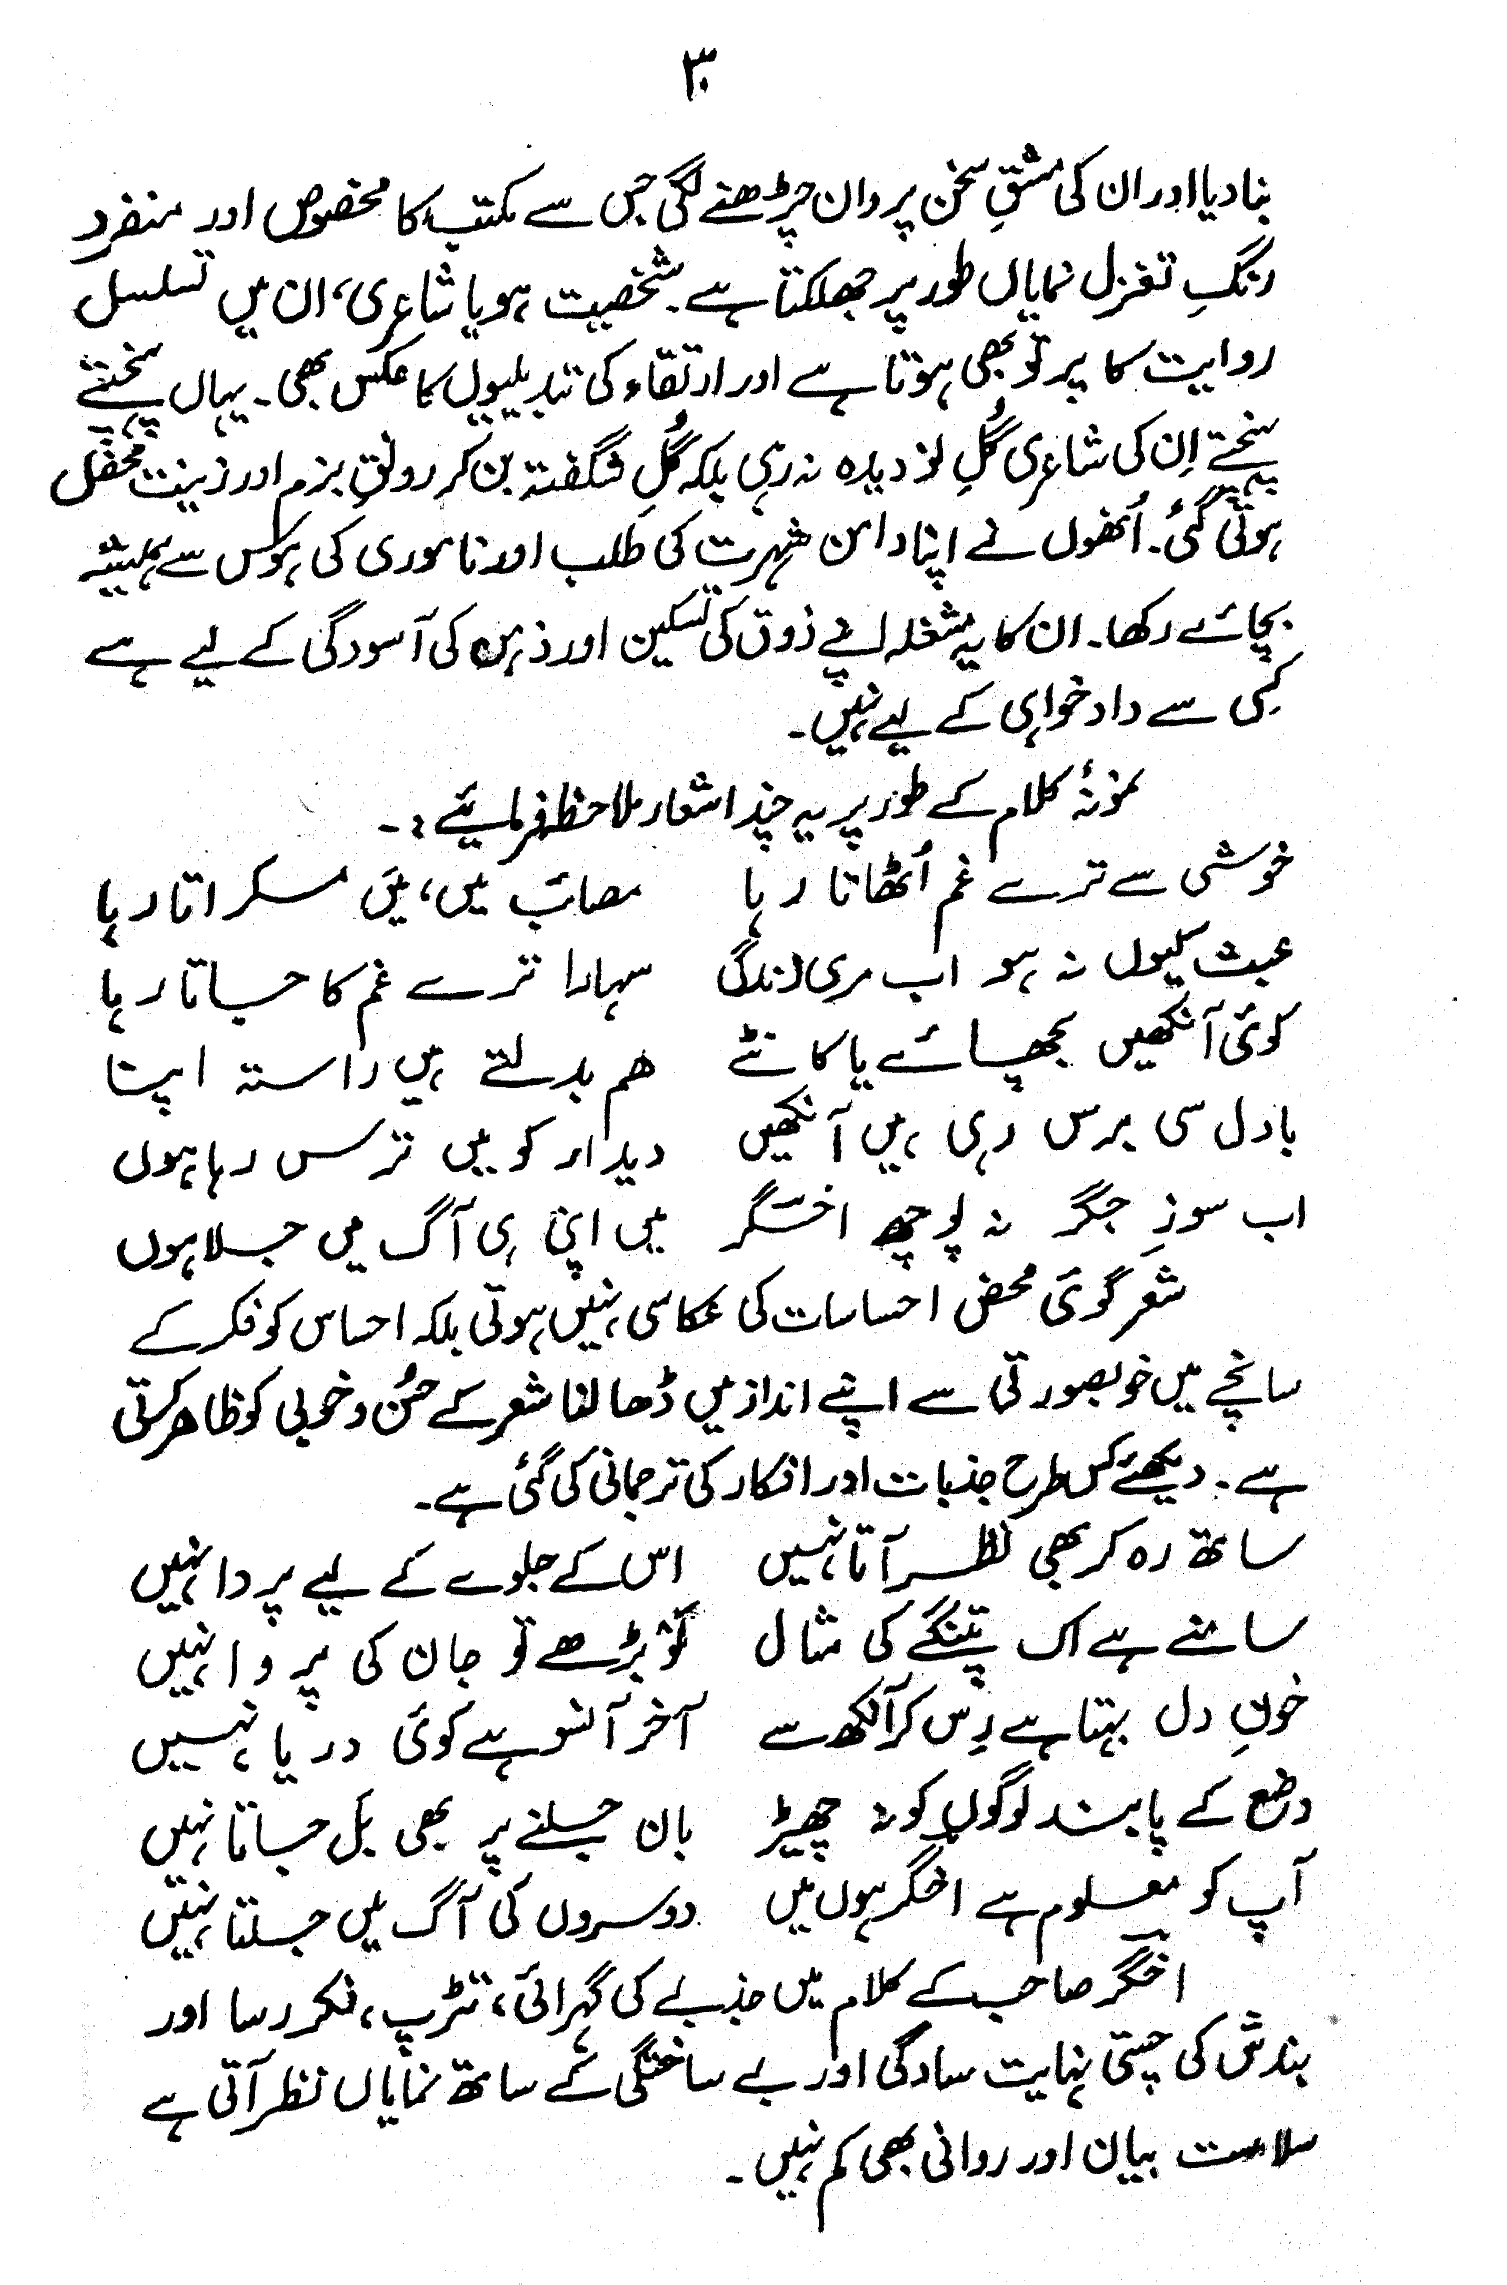 ۳۰
بنا دیا اور ان کی مشقِ سخن پروان چڑھنے لگی جس سے مکتب کا مخصوص اور منفرد
رنگِ تغزل نمایاں طور پر جھلکتا ہے۔ شخصیت ہو یا شاعری، ان میں تسلسل
روایت کا پرتو بھی ہوتا ہے اور ارتقاء کی تبدیلیوں کا عکس بھی۔ یہاں پہنچتے
پہنچتے اِن کی شاعری گُلِ نو دیدہ نہ رہی بلکہ گُلِ شگفتہ بن کر رونقِ بزم اور زینت محفل
ہوتی گئی۔ اُنھوں نے اپنا دامن شہرت کی طلب اور ناموری کی ہوس سے ہمیشہ
بچائے رکھا۔ ان کا یہ مشغلہ اپنے ذوق کی تسکین اور ذہن کی آسودگی کے لیے ہے
کسی سے داد خواہی کے لیے نہیں۔
نمونۂ کلام کے طور پر یہ چند اشعار ملاحظہ فرمایئے:۔
خوشی سے ترے غم اُٹھاتا رہا مصائب میں، میں مسکراتا رہا
عبث کیوں نہ ہو اب مری زندگی سہارا ترے غم کا جاتا رہا
کوئی آنکھیں بچھائے یا کانٹے ھم بدلتے ہیں راستہ اپنا
بادل سی برس رہی ہیں آنکھیں دیدار کو میں ترس رہا ہوں
اب سوزِ جگر نہ پوچھ اخگر میں اپنی ہی آگ میں جلا ہوں
شعر گوئی محض احساسات کی عکاسی نہیں ہوتی بلکہ احساس کو فکر کے
سانچے میں خوبصورتی سے اپنے انداز میں ڈھالنا شعر کے حُسن و خوبی کو ظاھر کرتی
ہے۔ دیکھئے کس طرح جذبات اور افکار کی ترجمانی کی گئی ہے۔
ساتھ رہ کر بھی نظر آتا نہیں اس کے جلوے کے لیے پردا نہیں
سامنے ہے اک پتنگے کی مثال لَو بڑھے تو جان کی پروا نہیں
خونِ دل بہتا ہے رِس کر آنکھ سے آخر آنسو ہے کوئی دریا نہیں
وضع کے پابند لوگوں کو نہ چھیڑ بان جلنے پر بھی بَل جاتا نہیں
آپ کو معلوم ہے اخگر ہوں میں دوسروں کی آگ میں جلتا نہیں
اخگر صاحب کے کلام میں جذبے کی گہرائی، تڑپ، فکر رسا اور
بندش کی چستی نہایت سادگی اور بے ساختگی کے ساتھ نمایاں نظر آتی ہے
سلاست بیان اور روانی بھی کم نہیں۔